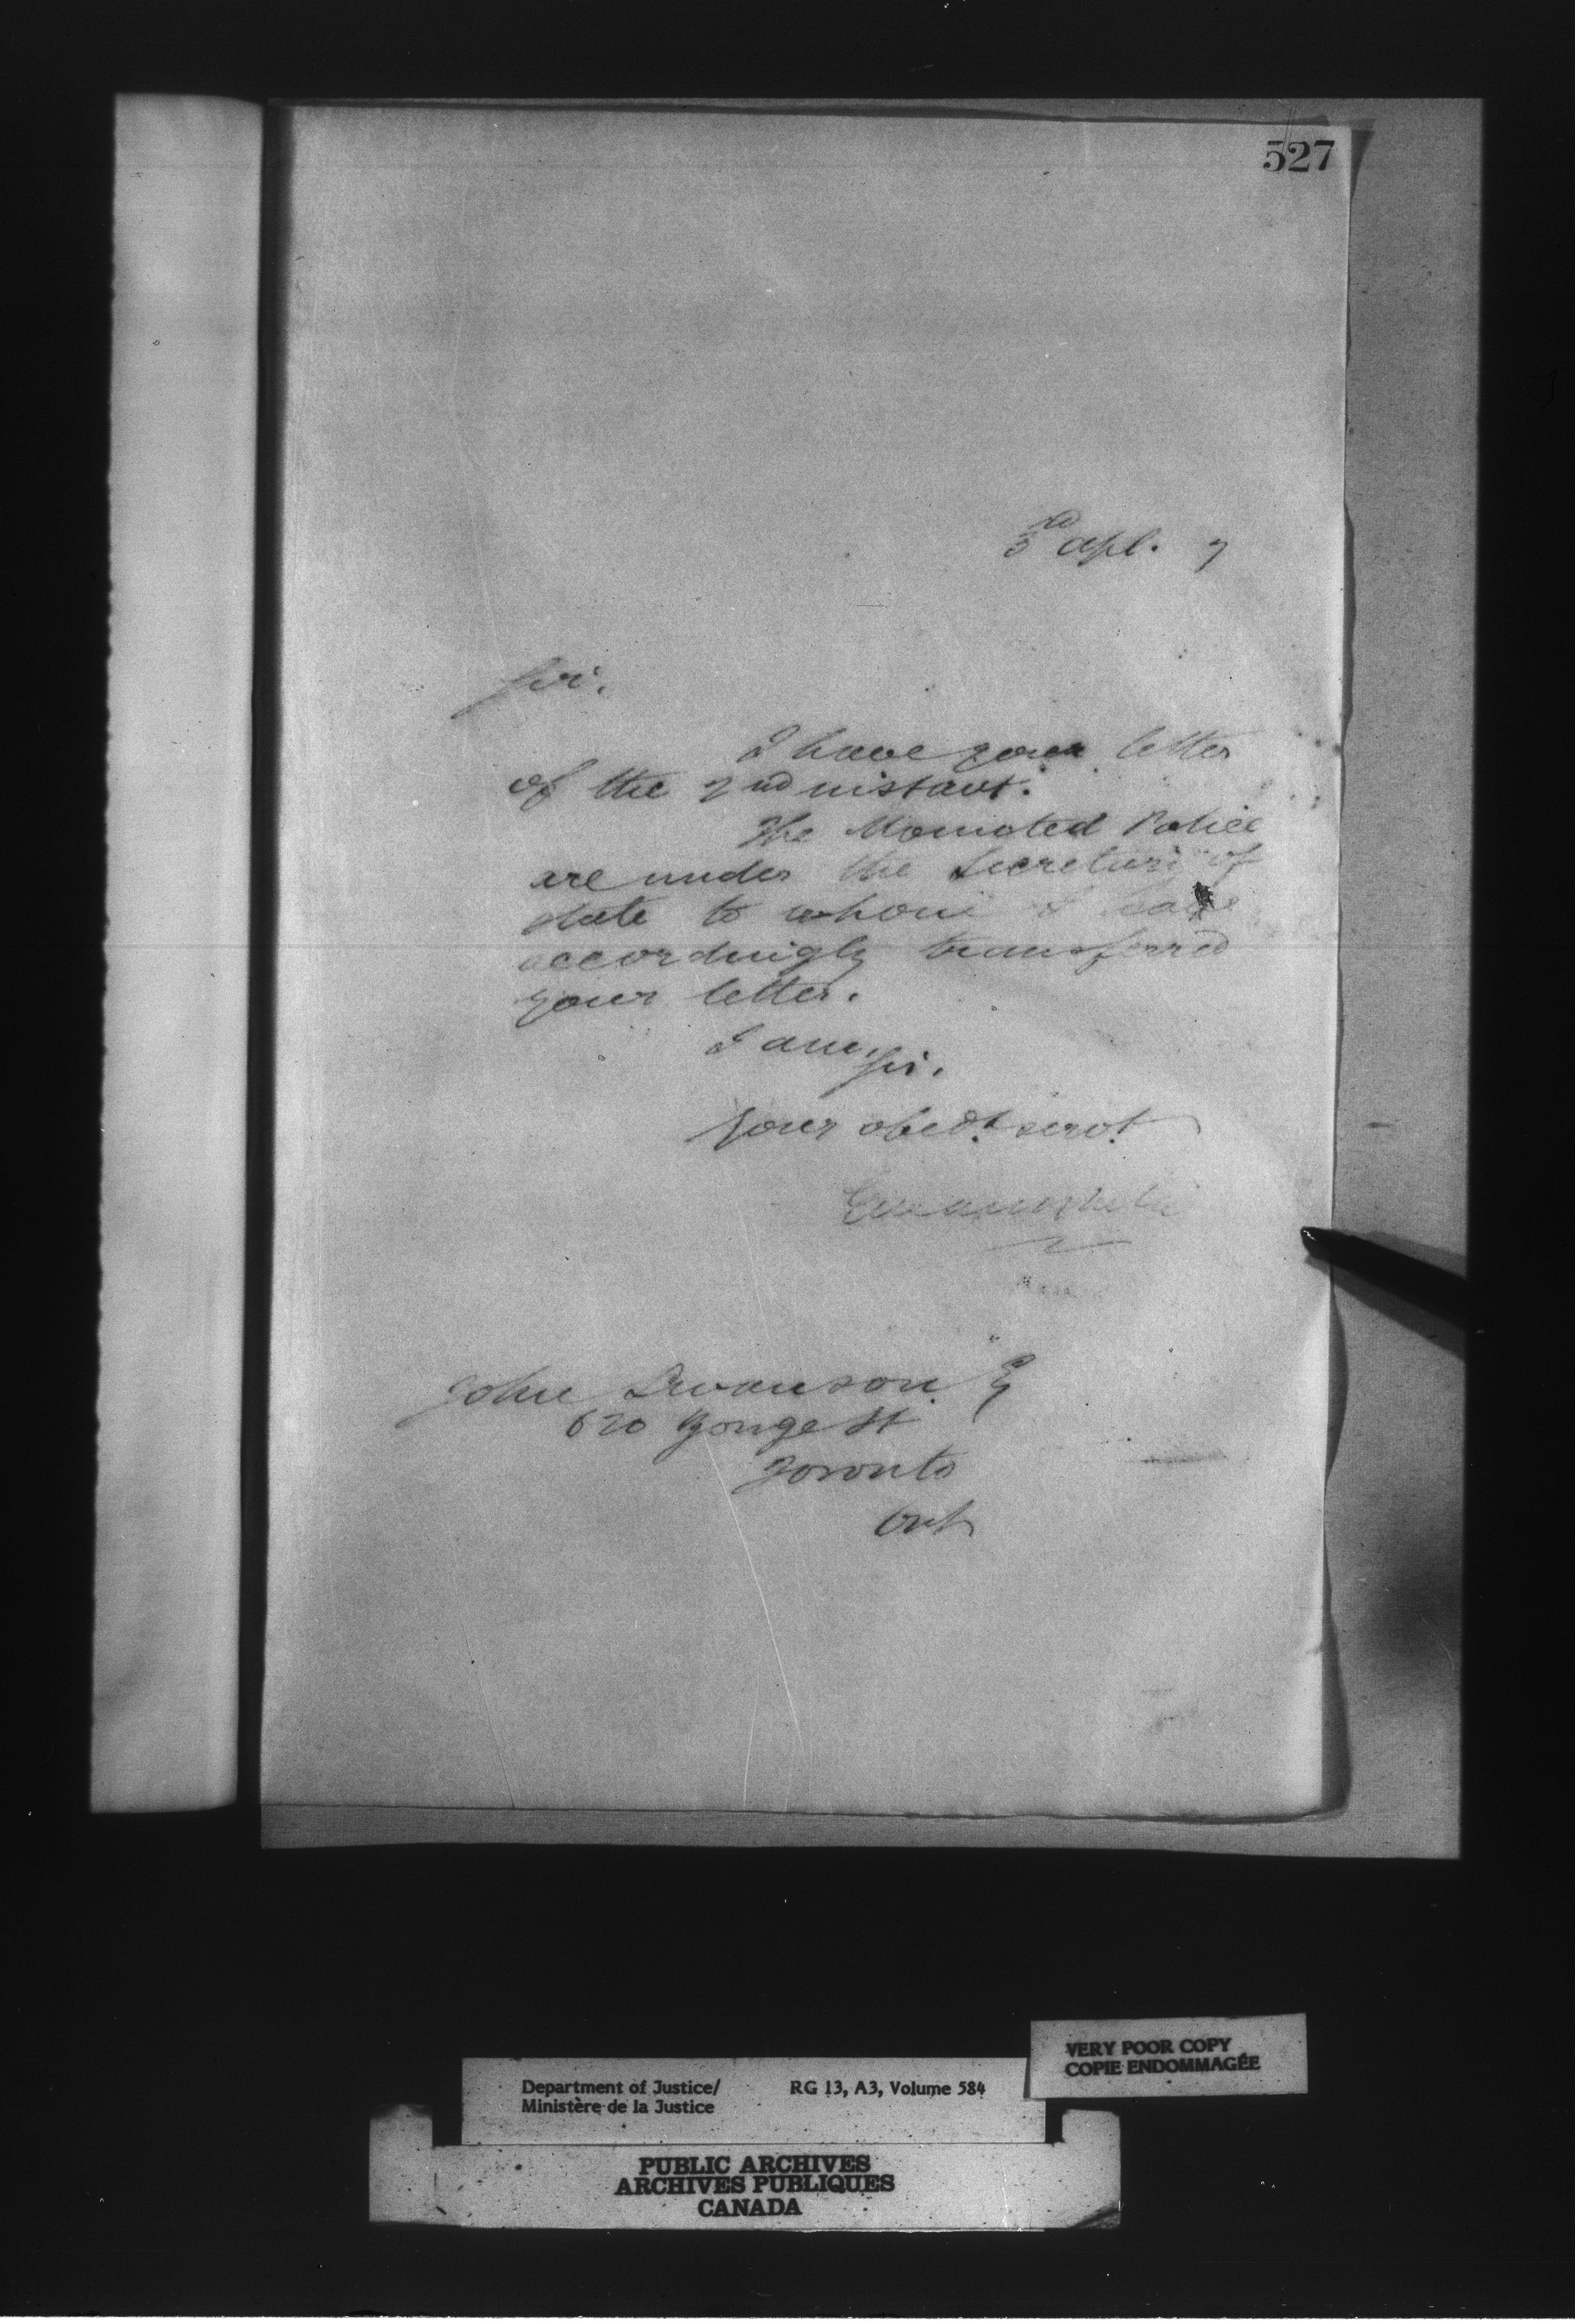 527
3rd Apl. 7
Sir.
I have your letter
of the 2nd instant.
The Mounted Police
are under the Secretary of
State to whom I have
accordingly transferred
your letter.
I am,
Sir.
Your obedt servt
John Swanson Eq
620 Yonge St
Toronto
Ont
VERY POOR COPY
COPIE ENDOMMAGÉE
Department of Justice/ RG 13, A3, Volume 584
Ministère de la Justice
PUBLIC ARCHIVES
ARCHIVES PUBLIQUES
CANADA